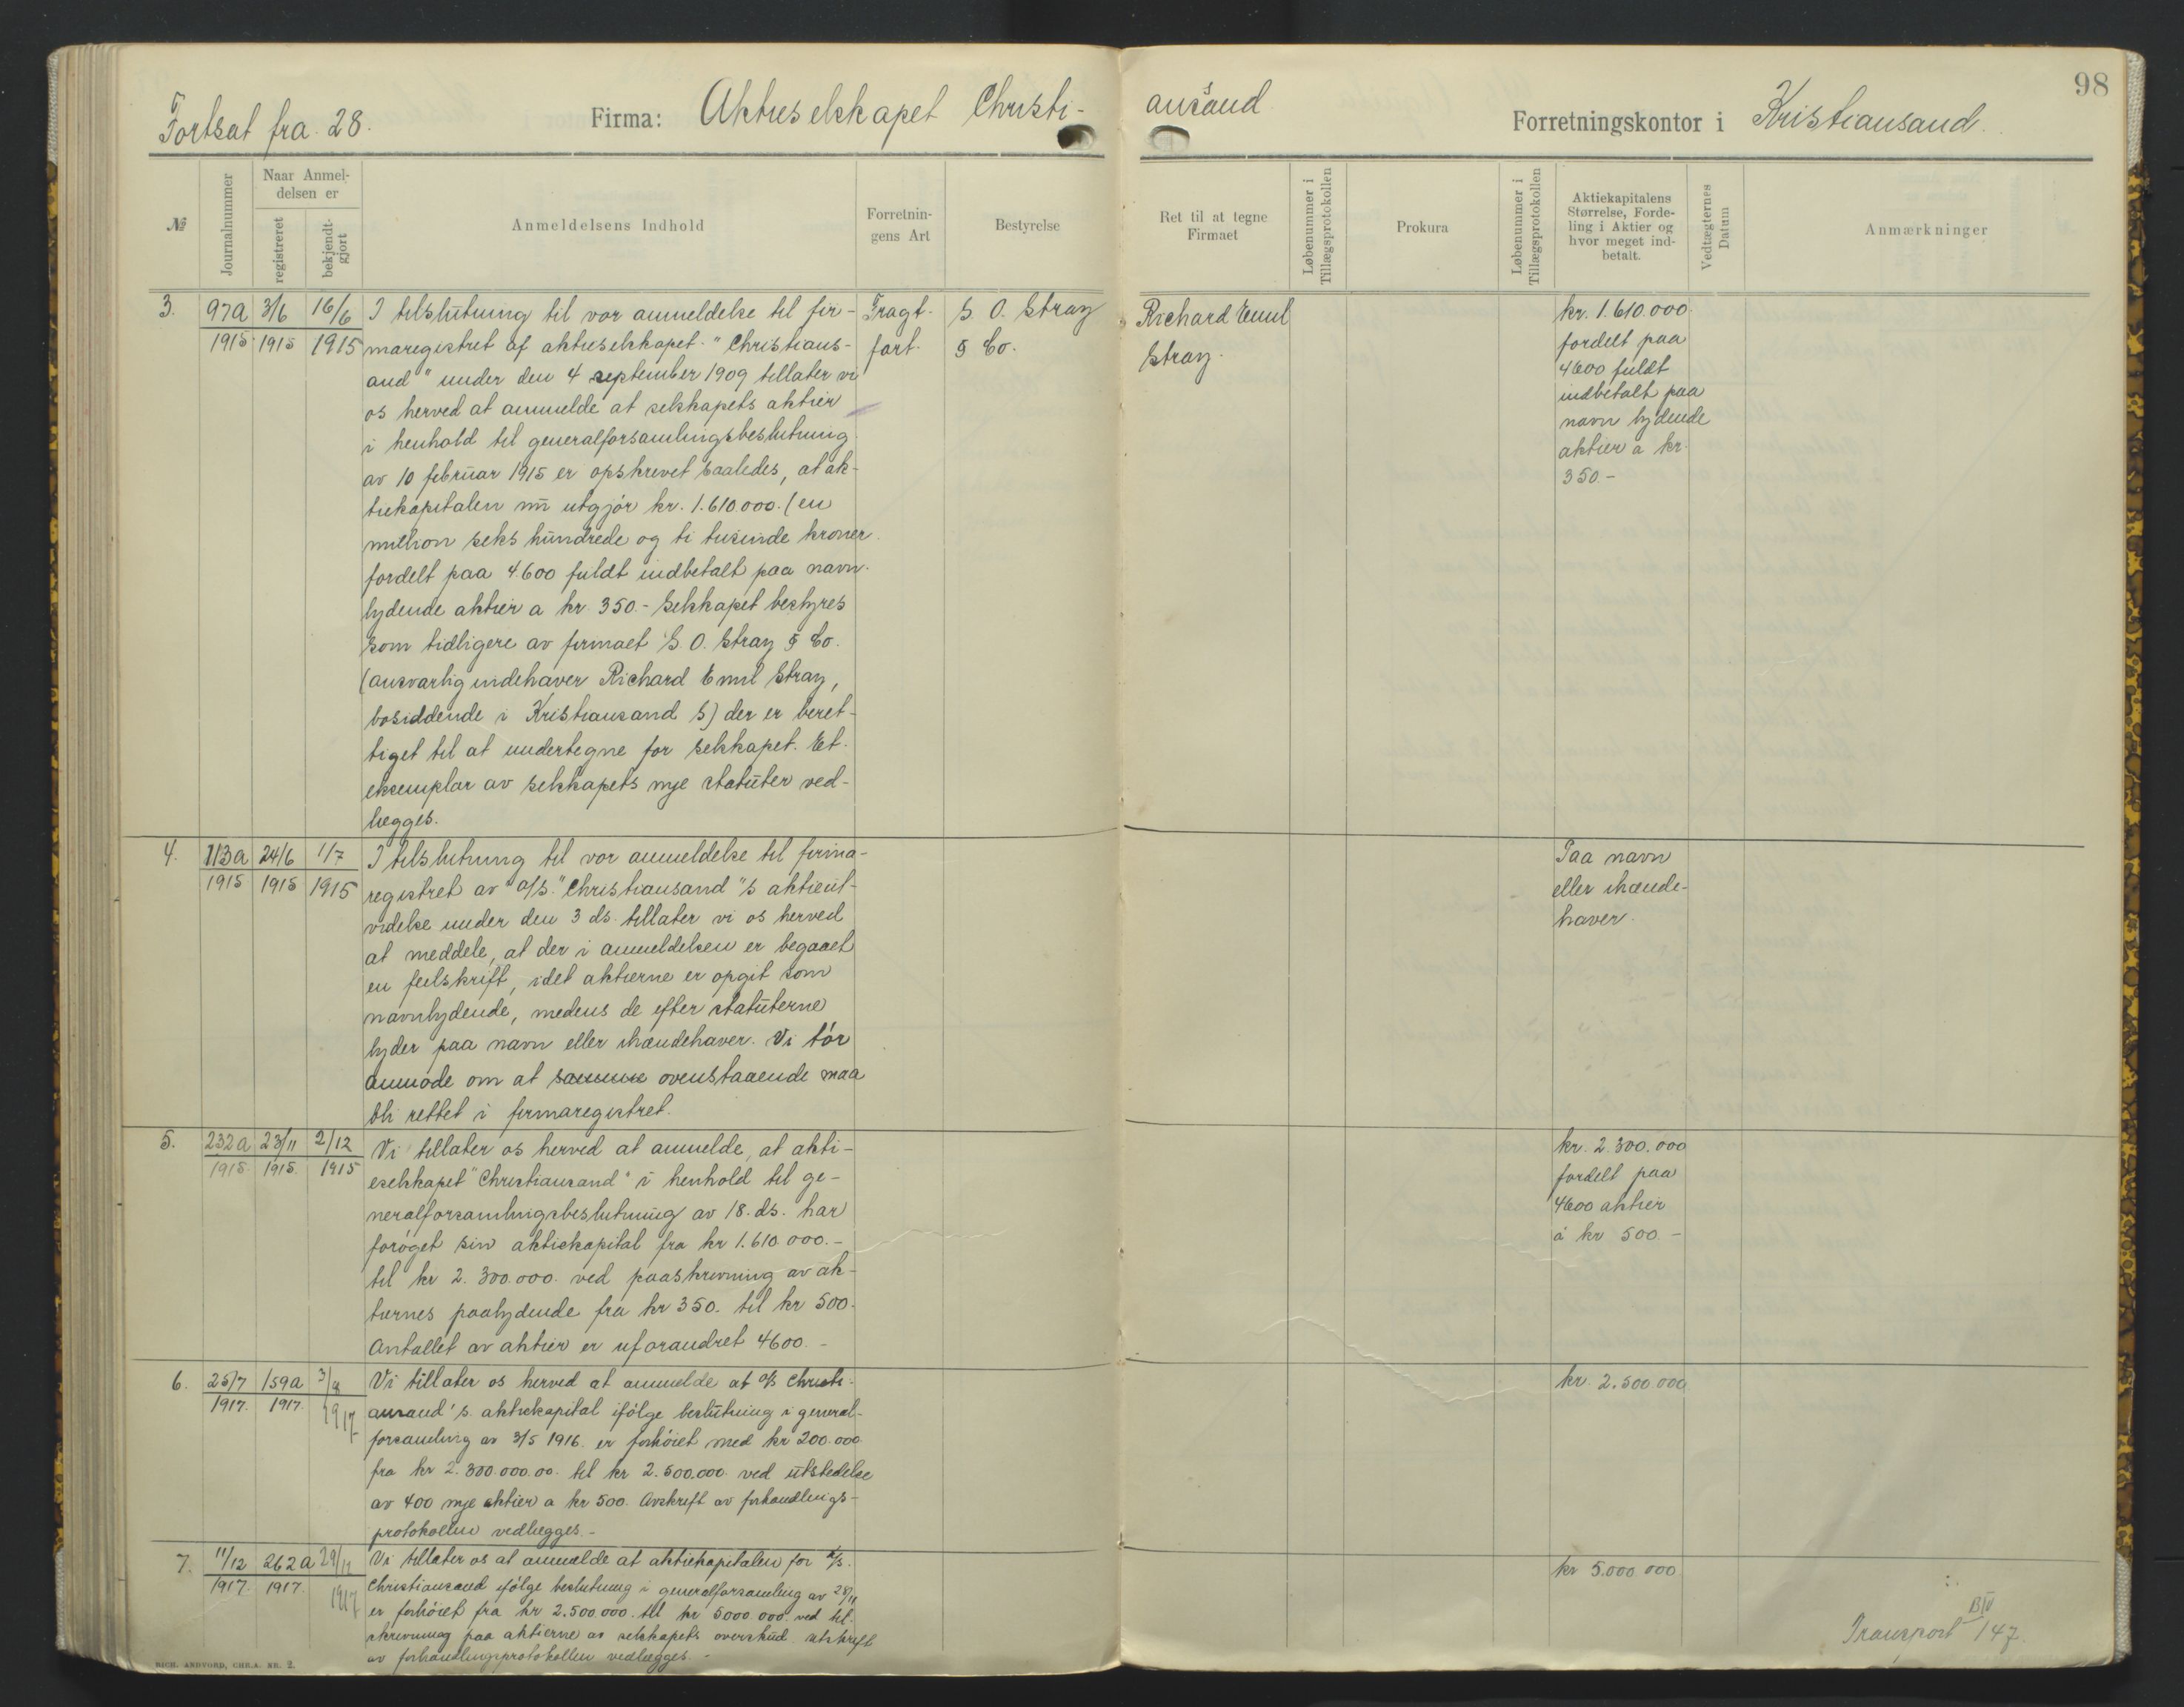 98
Fortsat fra 28.
Firma: Aktieselskapet Christi-
ansand
Forretningskontor i Kristiansand.
№
Journalnummer
Naar Anmel-
delsen er
registreret
bekjendt-
gjort
Anmeldelsens Indhold
Forretnin-
gens Art
Bestyrelse
Ret til at tegne
Firmaet
Løbenummer i
Tillægsprotokollen
Prokura
Løbenummer i
Tillægsprotokollen
Aktiekapitalens
Størrelse, Forde-
ling i Aktier og
hvor meget ind-
betalt.
Vedtægternes
Datum
Anmærkninger
3. 97a 3/6 16/6
1915 1915 1915
I tilslutning til vor anmeldelse til fir-
maregistret af aktieselskapet "Christians-
and" under den 4 september 1909 tillater vi
os herved at anmelde at selskapets aktier
i henhold til generalforsamlingsbeslutning
av 10 februar 1915 er opskrevet saaledes, at ak-
tiekapitalen nu utgjör kr. 1.610.000. (en
million seks hundrede og ti tusinde kroner
fordelt paa 4.600 fuldt indbetalt paa navn
lydende aktier a kr. 350.- Selskapet bestyres
som tidligere av firmaet S. O. Stray & Co.
(ansvarlig indehaver Richard Emil Stray,
bosiddende i Kristiansand S) der er beret-
tiget til at undertegne for selskapet. Et
eksemplar av selskapets nye statuter ved-
lægges.
Fragt-
fart.
S. O. Stray
& Co.
Richard Emil
Stray.
kr. 1.610.000
fordelt paa
4600 fuldt
indbetalt paa
navn lydende
aktier a kr.
350.-
4. 113a 24/6 1/7
1915 1915 1915
I tilslutning til vor anmeldelse til firma-
registret av "a/s." Christiansand"s aktieut-
videlse under den 3 ds. tillater vi os herved
at meddele, at der i anmeldelsen er begaaet
en feilskrift, idet aktierne er opgit som
navnlydende, medens de efter statuterne
lyder paa navn eller ihændehaver. Vi tör
anmode om at samme ovenstaaende maa
bli rettet i firmaregistret.
Paa navn
eller ihænde-
haver.
5. 232a 23/11 2/12
1915 1915. 1915
Vi tillater os herved at anmelde, at akti-
eselskapet "Christiansand" i henhold til ge-
neralforsamlingsbeslutning av 18. ds. har
foröget sin aktiekapital fra kr 1.610.000.-
til kr 2.300.000. ved paaskrivning av ak-
tiernes paalydende fra kr 350. til kr 500.
Antallet av aktier er uforandret 4600.-
kr. 2.300.000
fordelt paa
4600 aktier
á kr 500.-
6. 25/7 159a 3/8
1917. 1917. 1917
Vi tillater os herved at anmelde at a/s Christi-
ansand's aktiekapital ifölge beslutning i general-
forsamling av 3/5 1916. er forhöiet med kr 200.000
fra kr 2.300.000.00. til kr 2.500.000. ved utstedelse
av 400 nye aktier a kr 500. Avskrift av forhandlings-
protokollen vedlægges.-
kr. 2.500.000
7. 11/12 262a 29/12
1917. 1917. 1917
Vi tillater os at anmelde at aktiekapitalen for a/s.
Christiansand ifölge beslutning i generalforsamling av 28/11
er forhöiet fra kr 2.500.000. til kr 5000.000. ved til-
skrivning paa aktierne av selskapets overskud. Utskrift
av forhandlingsprotokollen vedlægges.-
kr 5.000.000
Transport B IV/147.
RICH. ANDVORD, CHR.A. NR. 2.